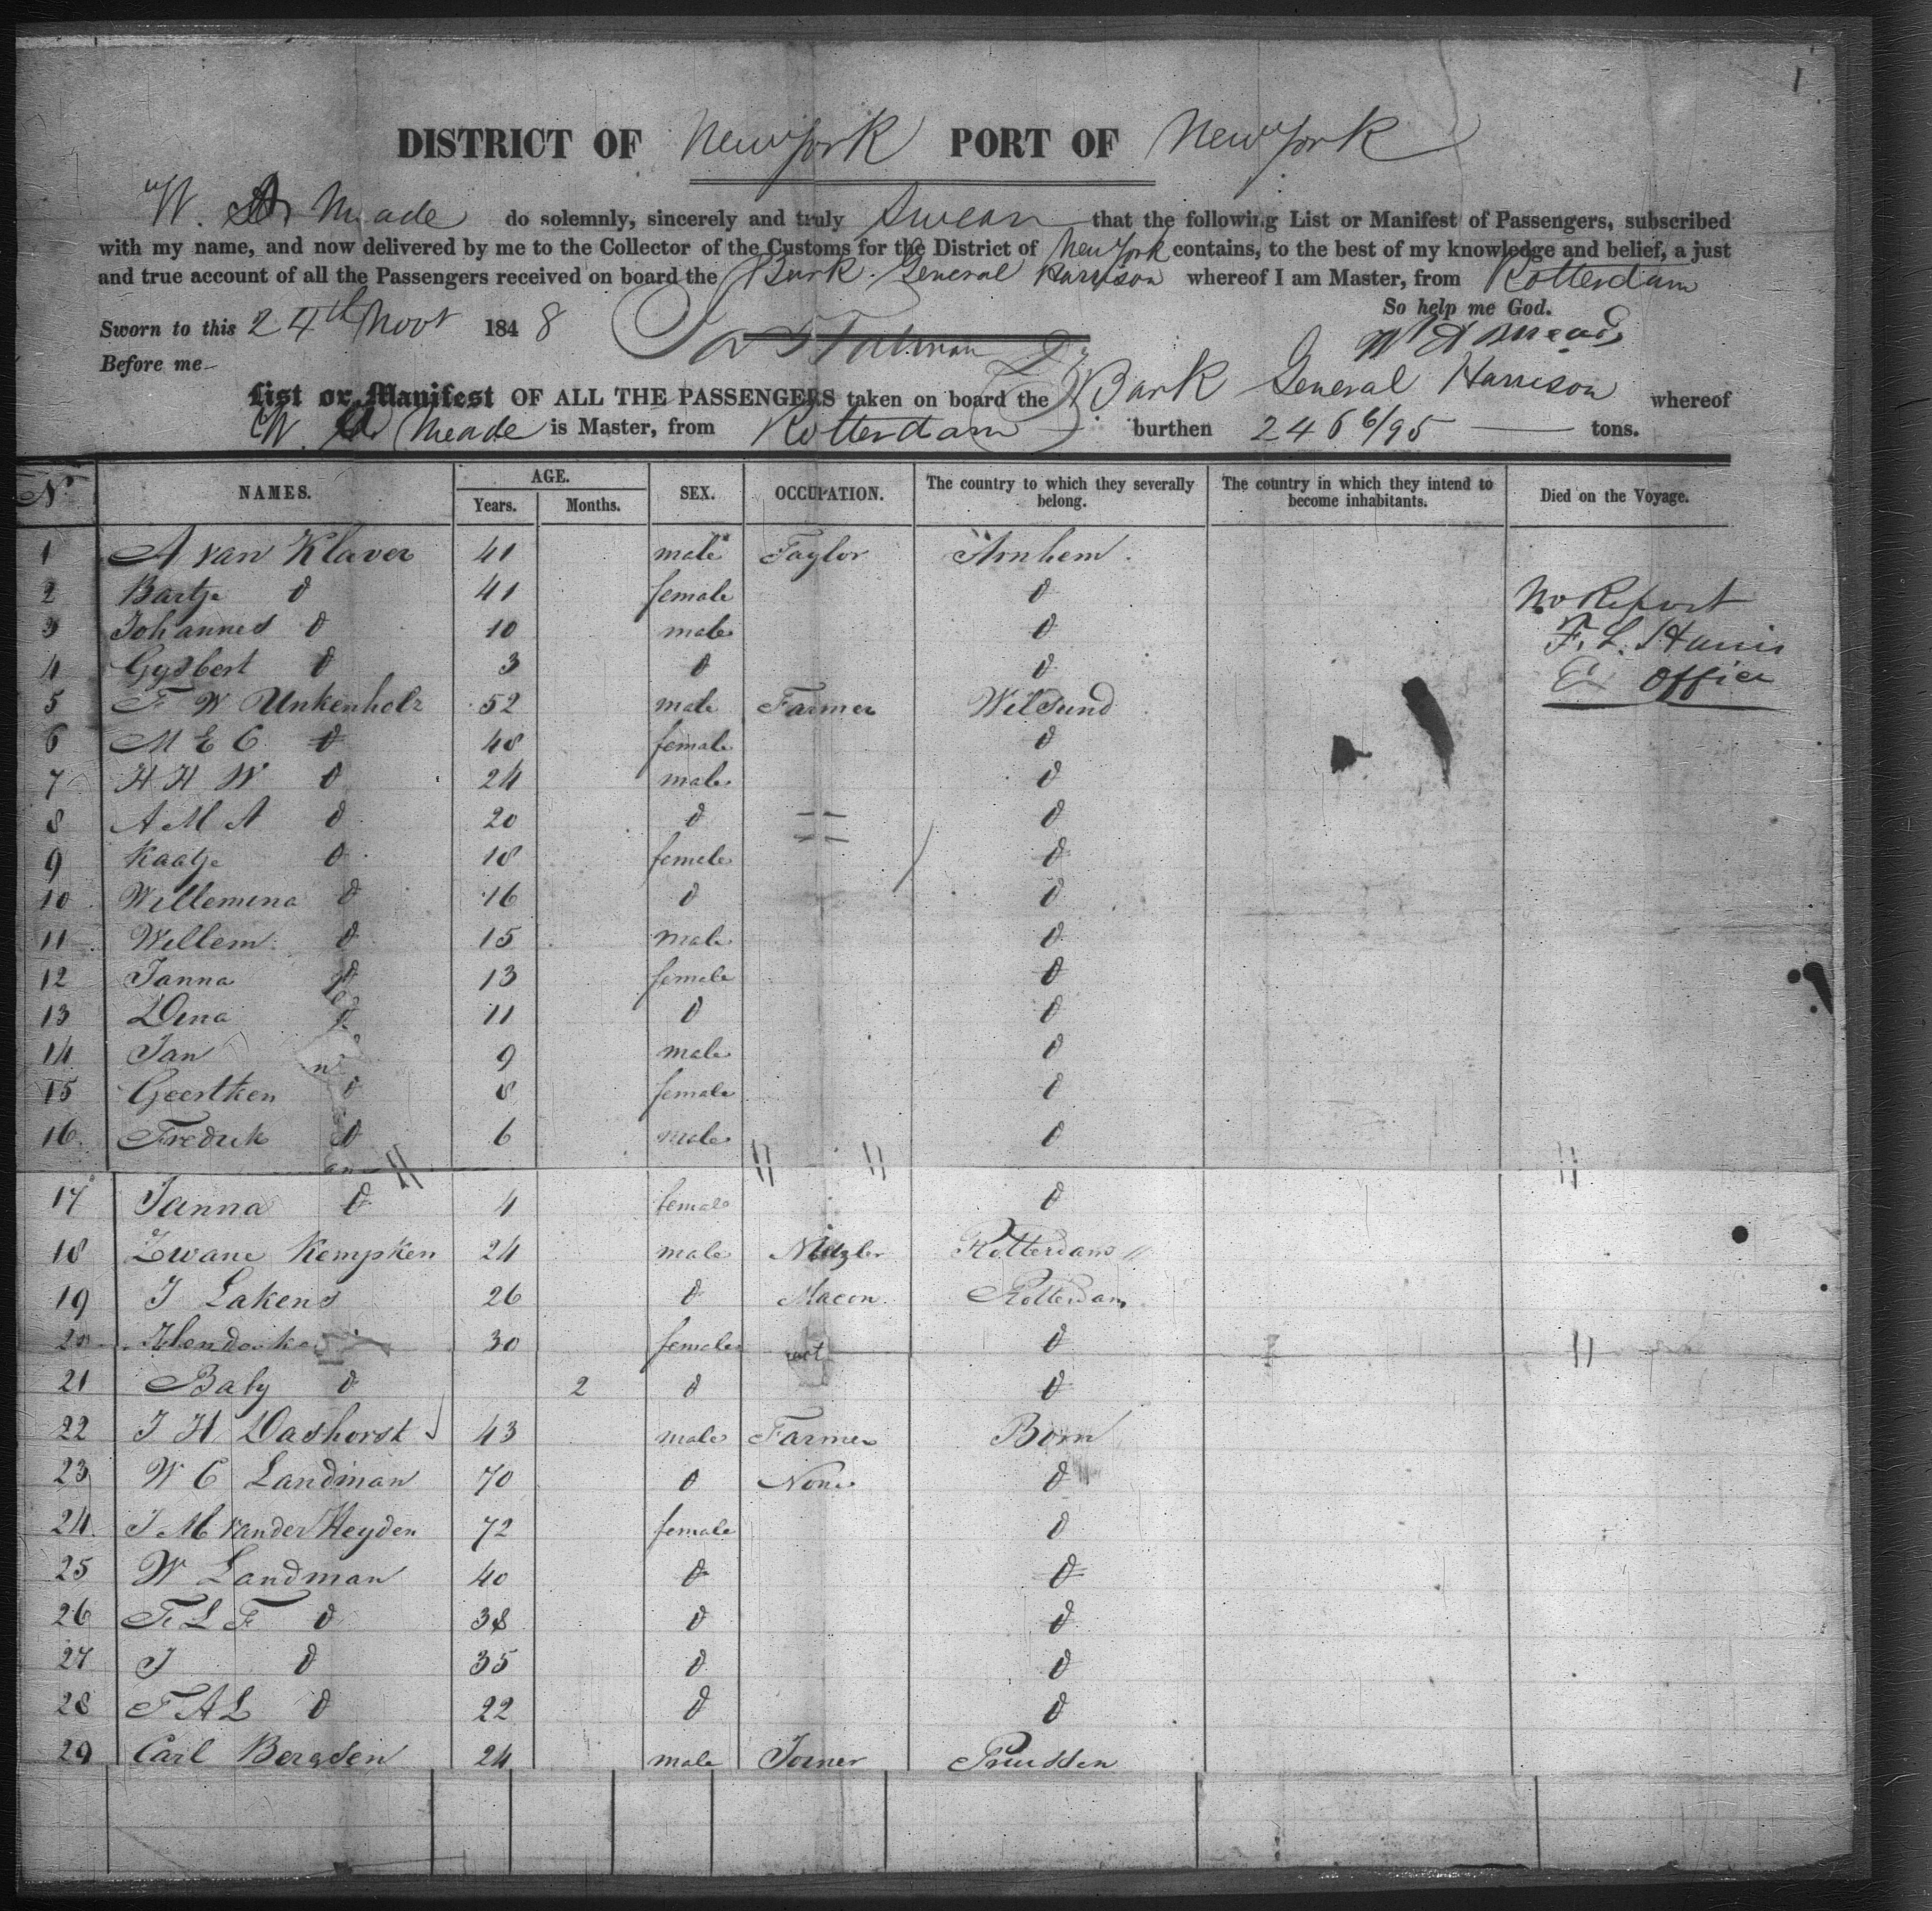 1
DISTRICT OF New York PORT OF New York
W. A. Meade do solemnly, sincerely and truly Swear that the following List or Manifest of Passengers, subscribed
with my name, and now delivered by me to the Collector of the Customs for the District of New York contains, to the best of my knowledge and belief, a just
and true account of all the Passengers received on board the Bark General Harrison whereof I am Master, from Rotterdam
So help me God.
Sworn to this 24th Novr 1848
W A Meade
Before me
List or Manifest OF ALL THE PASSENGERS taken on board the Bark General Harrison whereof
W. A. Meade is Master, from Rotterdam burthen 246 6/95 tons.
No. NAMES. AGE. Years. Months. SEX. OCCUPATION. The country to which they severally belong. The country in which they intend to become inhabitants. Died on the Voyage.
1 A van Klaver 41 male Taylor Arnhem.
2 Bartje d 41 female d
No Report
3 Johannes d 10 male d
F. L. Harris
4 Gysbert d 3 d d
Office
5 F W Unkenholz 52 male Farmer Wilsund
6 M E C d 48 female d
7 H H W d 24 male d
8 A M A d 20 d d
9 Kaatje d 18 female d
10 Willemina d 16 d d
11 Willem d 15 male d
12 Janna d 13 female d
13 Dina d 11 d d
14 Jan 9 male d
15 Geertken d 8 female d
16 Fredrik d 6 male d
17 Janna d 4 female d
18 Zwane Kempken 24 male Rotterdam
19 J Lakens 26 d Macon Rotterdam
20 30 female d
21 Baby d 2 d d
22 J H Dashorst 43 male Farmer Born
23 W C Landman 70 d None d
24 J M van der Heyden 72 female d
25 W Landman 40 d d
26 F L F d 38 d d
27 J d 35 d d
28 F A L d 22 d d
29 Carl Bergsen 24 male Joiner Prussen